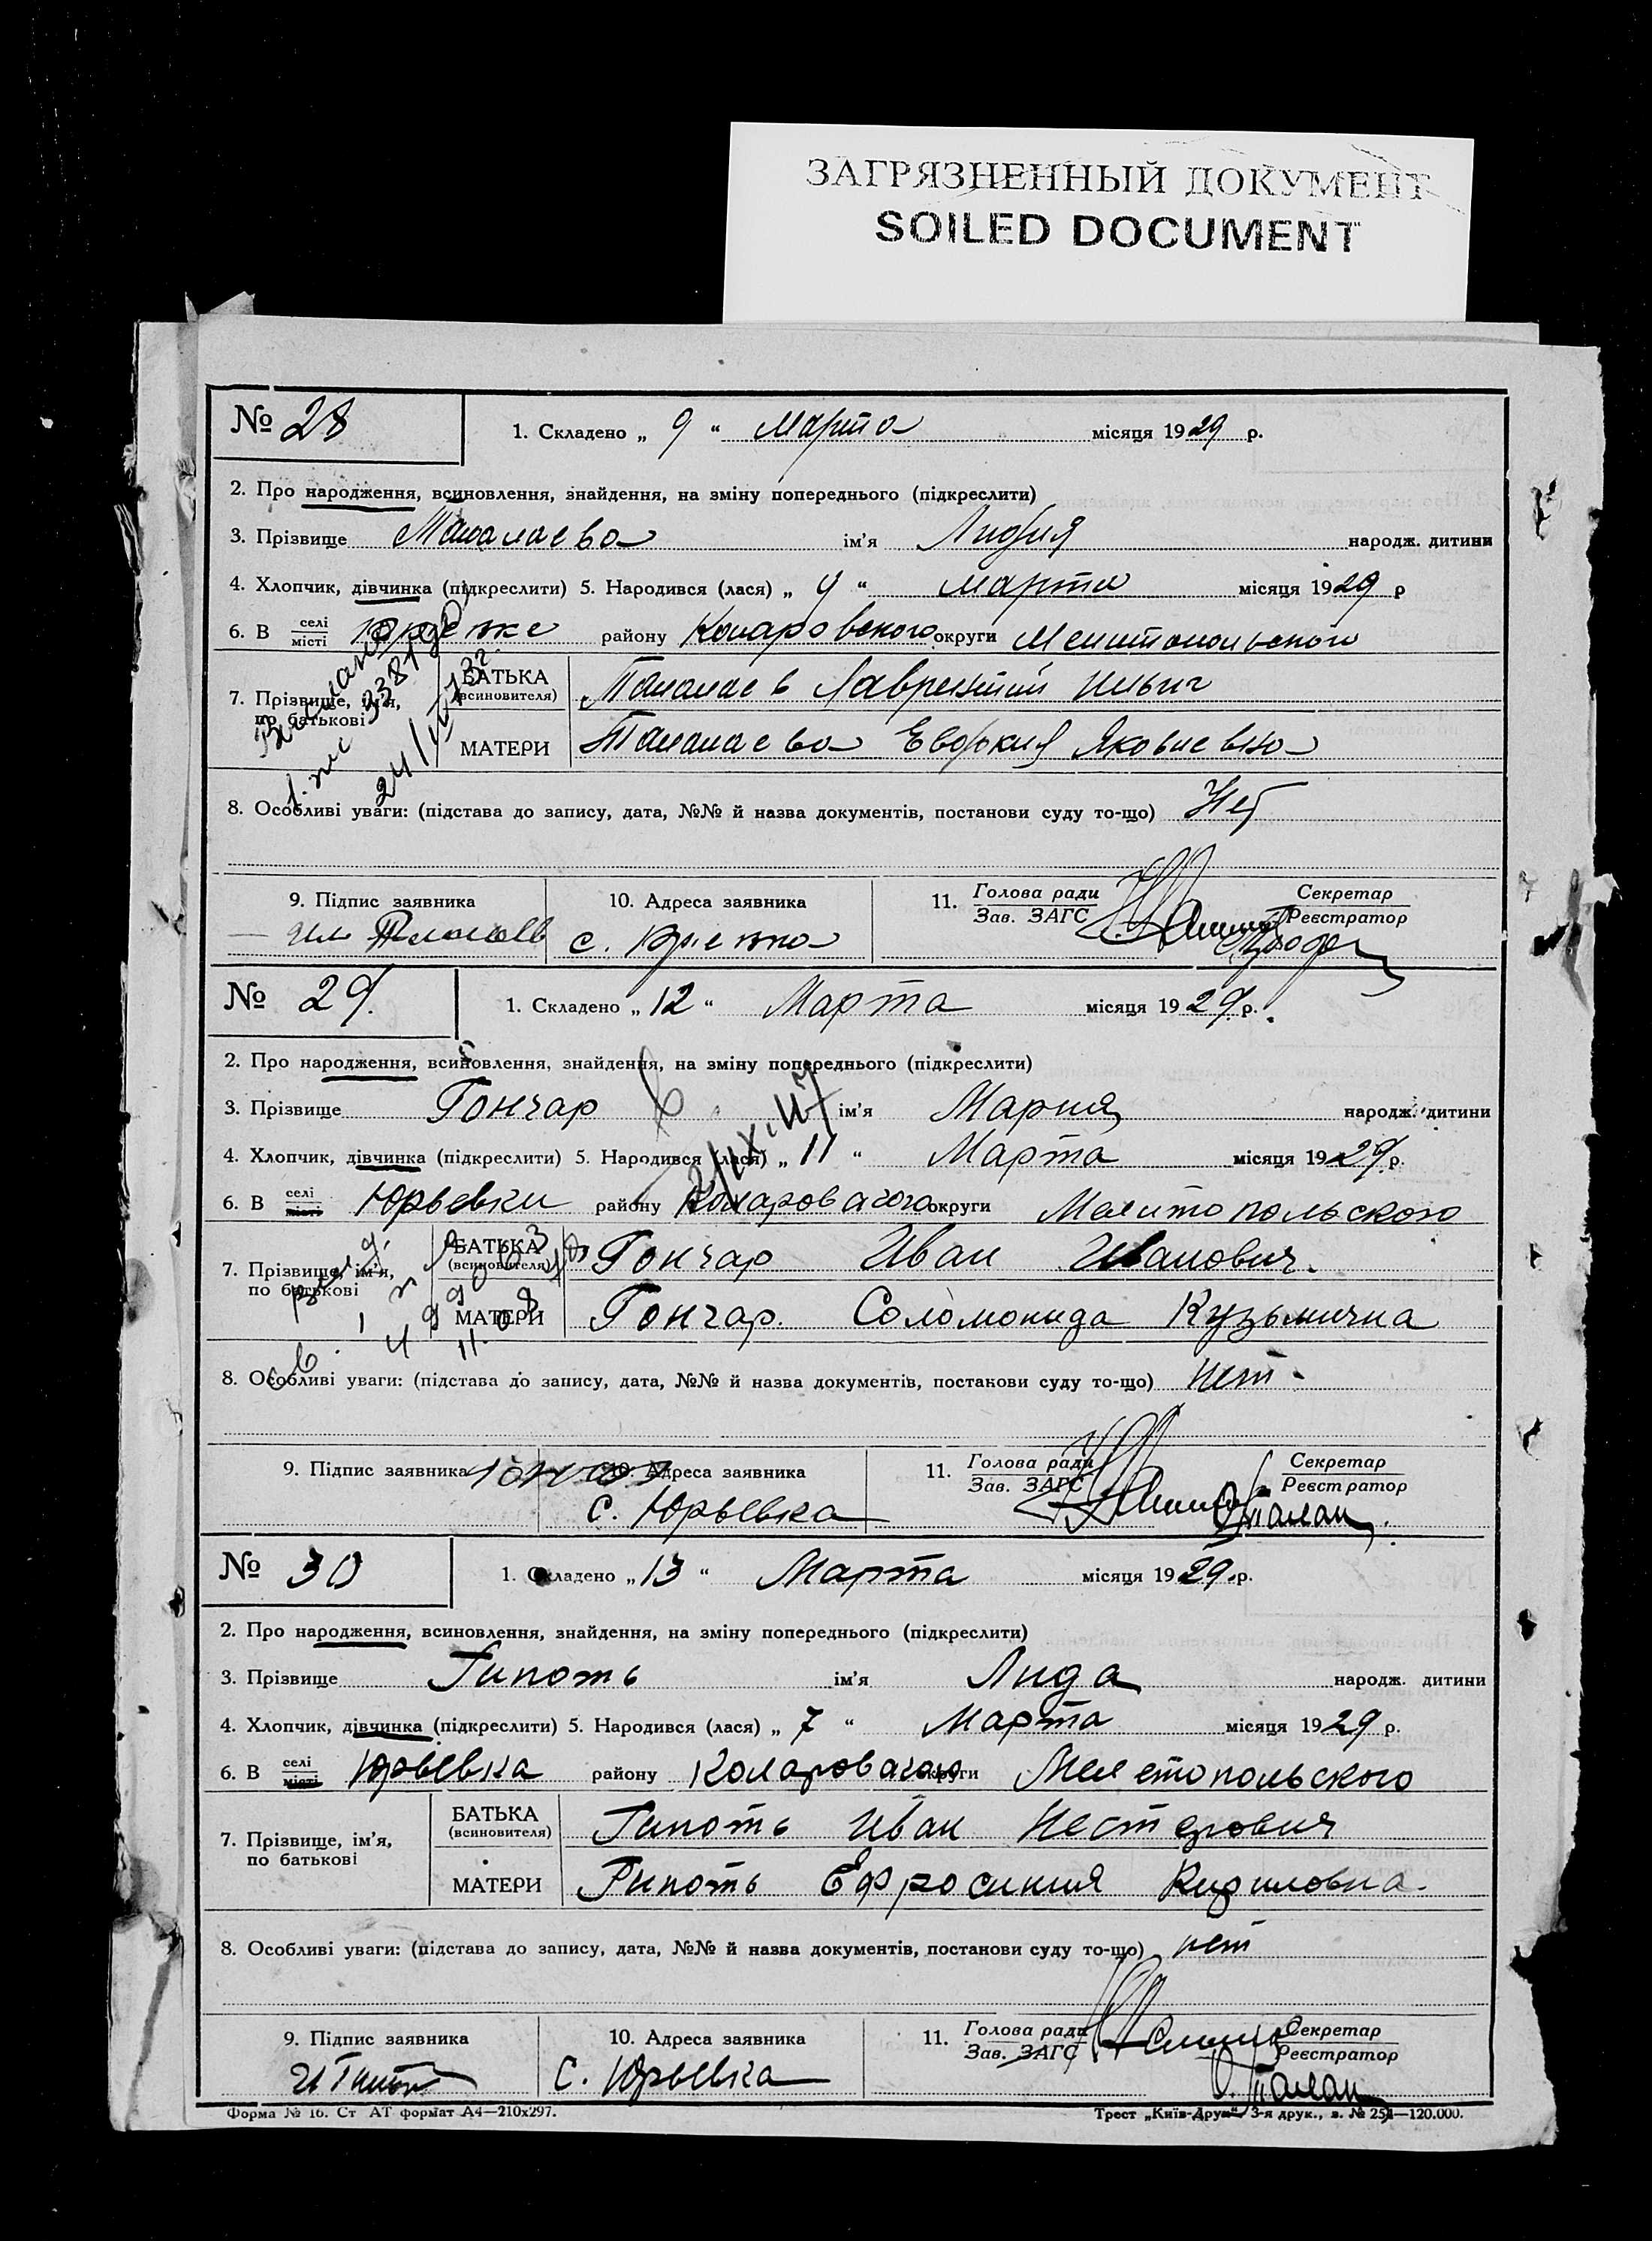 ЗАГРЯЗНЕННЫЙ ДОКУМЕНТ
SOILED DOCUMENT
№ 28
1. Складено „ 9 “ Марта місяця 1929 р.
2. Про народження, всиновлення, знайдення, на зміну попереднього (підкреслити)
3. Прізвище ім'я Лидия народж. дитини
4. Хлопчик, дівчинка (підкреслити) 5. Народився (лася) „ “ марта місяця 1929 р
6. В селі місті району Коларовского округи Мелитопольской
7. Прізвище, ім'я, по батькові
БАТЬКА (всиновителя) Лаврентий Ильич
МАТЕРИ Евдокия Яковлевна
24/IV 32г.
8. Особливі уваги: (підстава до запису, дата, №№ й назва документів, постанови суду то-що) Нет
9. Підпис заявника
10. Адреса заявника
11. Голова ради Зав. ЗАГС
Секретар Реєстратор
с.
№ 29.
1. Складено „ 12 “ Марта місяця 1929 р.
2. Про народження, всиновлення, знайдення, на зміну попереднього (підкреслити)
3. Прізвище Гончар ім'я Мария народж. дитини
4. Хлопчик, дівчинка (підкреслити) 5. Народився (лася) „ 11 “ Марта місяця 1929 р.
6. В селі місті Юрьевки району Коларовского округи Мелитопольского
7. Прізвище, ім'я, по батькові
БАТЬКА (всиновителя) Гончар Иван Иванович.
МАТЕРИ Гончар. Соломонида Кузьминична
8. Особливі уваги: (підстава до запису, дата, №№ й назва документів, постанови суду то-що) нет
9. Підпис заявника Гончар
10. Адреса заявника
11. Голова ради Зав. ЗАГС
Секретар Реєстратор
с. Юрьевка
№ 30
1. Складено „ 13 “ Марта місяця 1929 р.
2. Про народження, всиновлення, знайдення, на зміну попереднього (підкреслити)
3. Прізвище Гипоть ім'я Лида народж. дитини
4. Хлопчик, дівчинка (підкреслити) 5. Народився (лася) „ 7 “ Марта місяця 1929 р.
6. В селі місті Юрьевка району Коларовского округи Мелетопольского
7. Прізвище, ім'я, по батькові
БАТЬКА (всиновителя) Гипоть Иван Нестерович
МАТЕРИ Гипоть Ефросиния Кириловна.
8. Особливі уваги: (підстава до запису, дата, №№ й назва документів, постанови суду то-що) нет
9. Підпис заявника
10. Адреса заявника
11. Голова ради Зав. ЗАГС
Секретар Реєстратор
С. Юрьевка
Форма № 16. Ст АТ формат А4—210х297.
Трест „Київ-Друк“ 3-я друк., з. № 251—120.000.